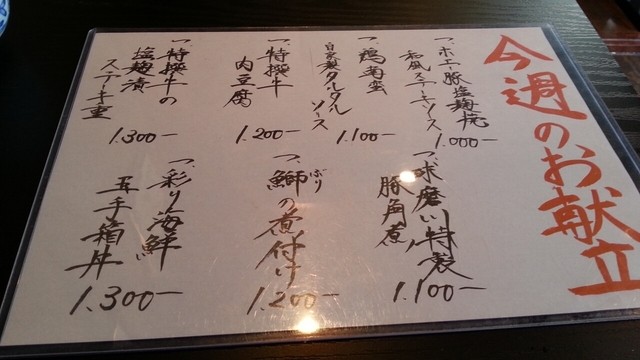 今週のお献立
一、ホエー豚塩麹焼
和風ステーキソース
1.000-
一、鶏南蛮
自家製タルタル
ソース
1.100-
一、特撰牛
肉豆腐
1.200-
一、特撰牛の
塩麹漬
ステーキ重
1.300-
一、球磨川特製
豚角煮
1.100-
一、鰤の煮付け
ぶり
1.200-
一、彩り海鮮
玉手箱丼
1.300-